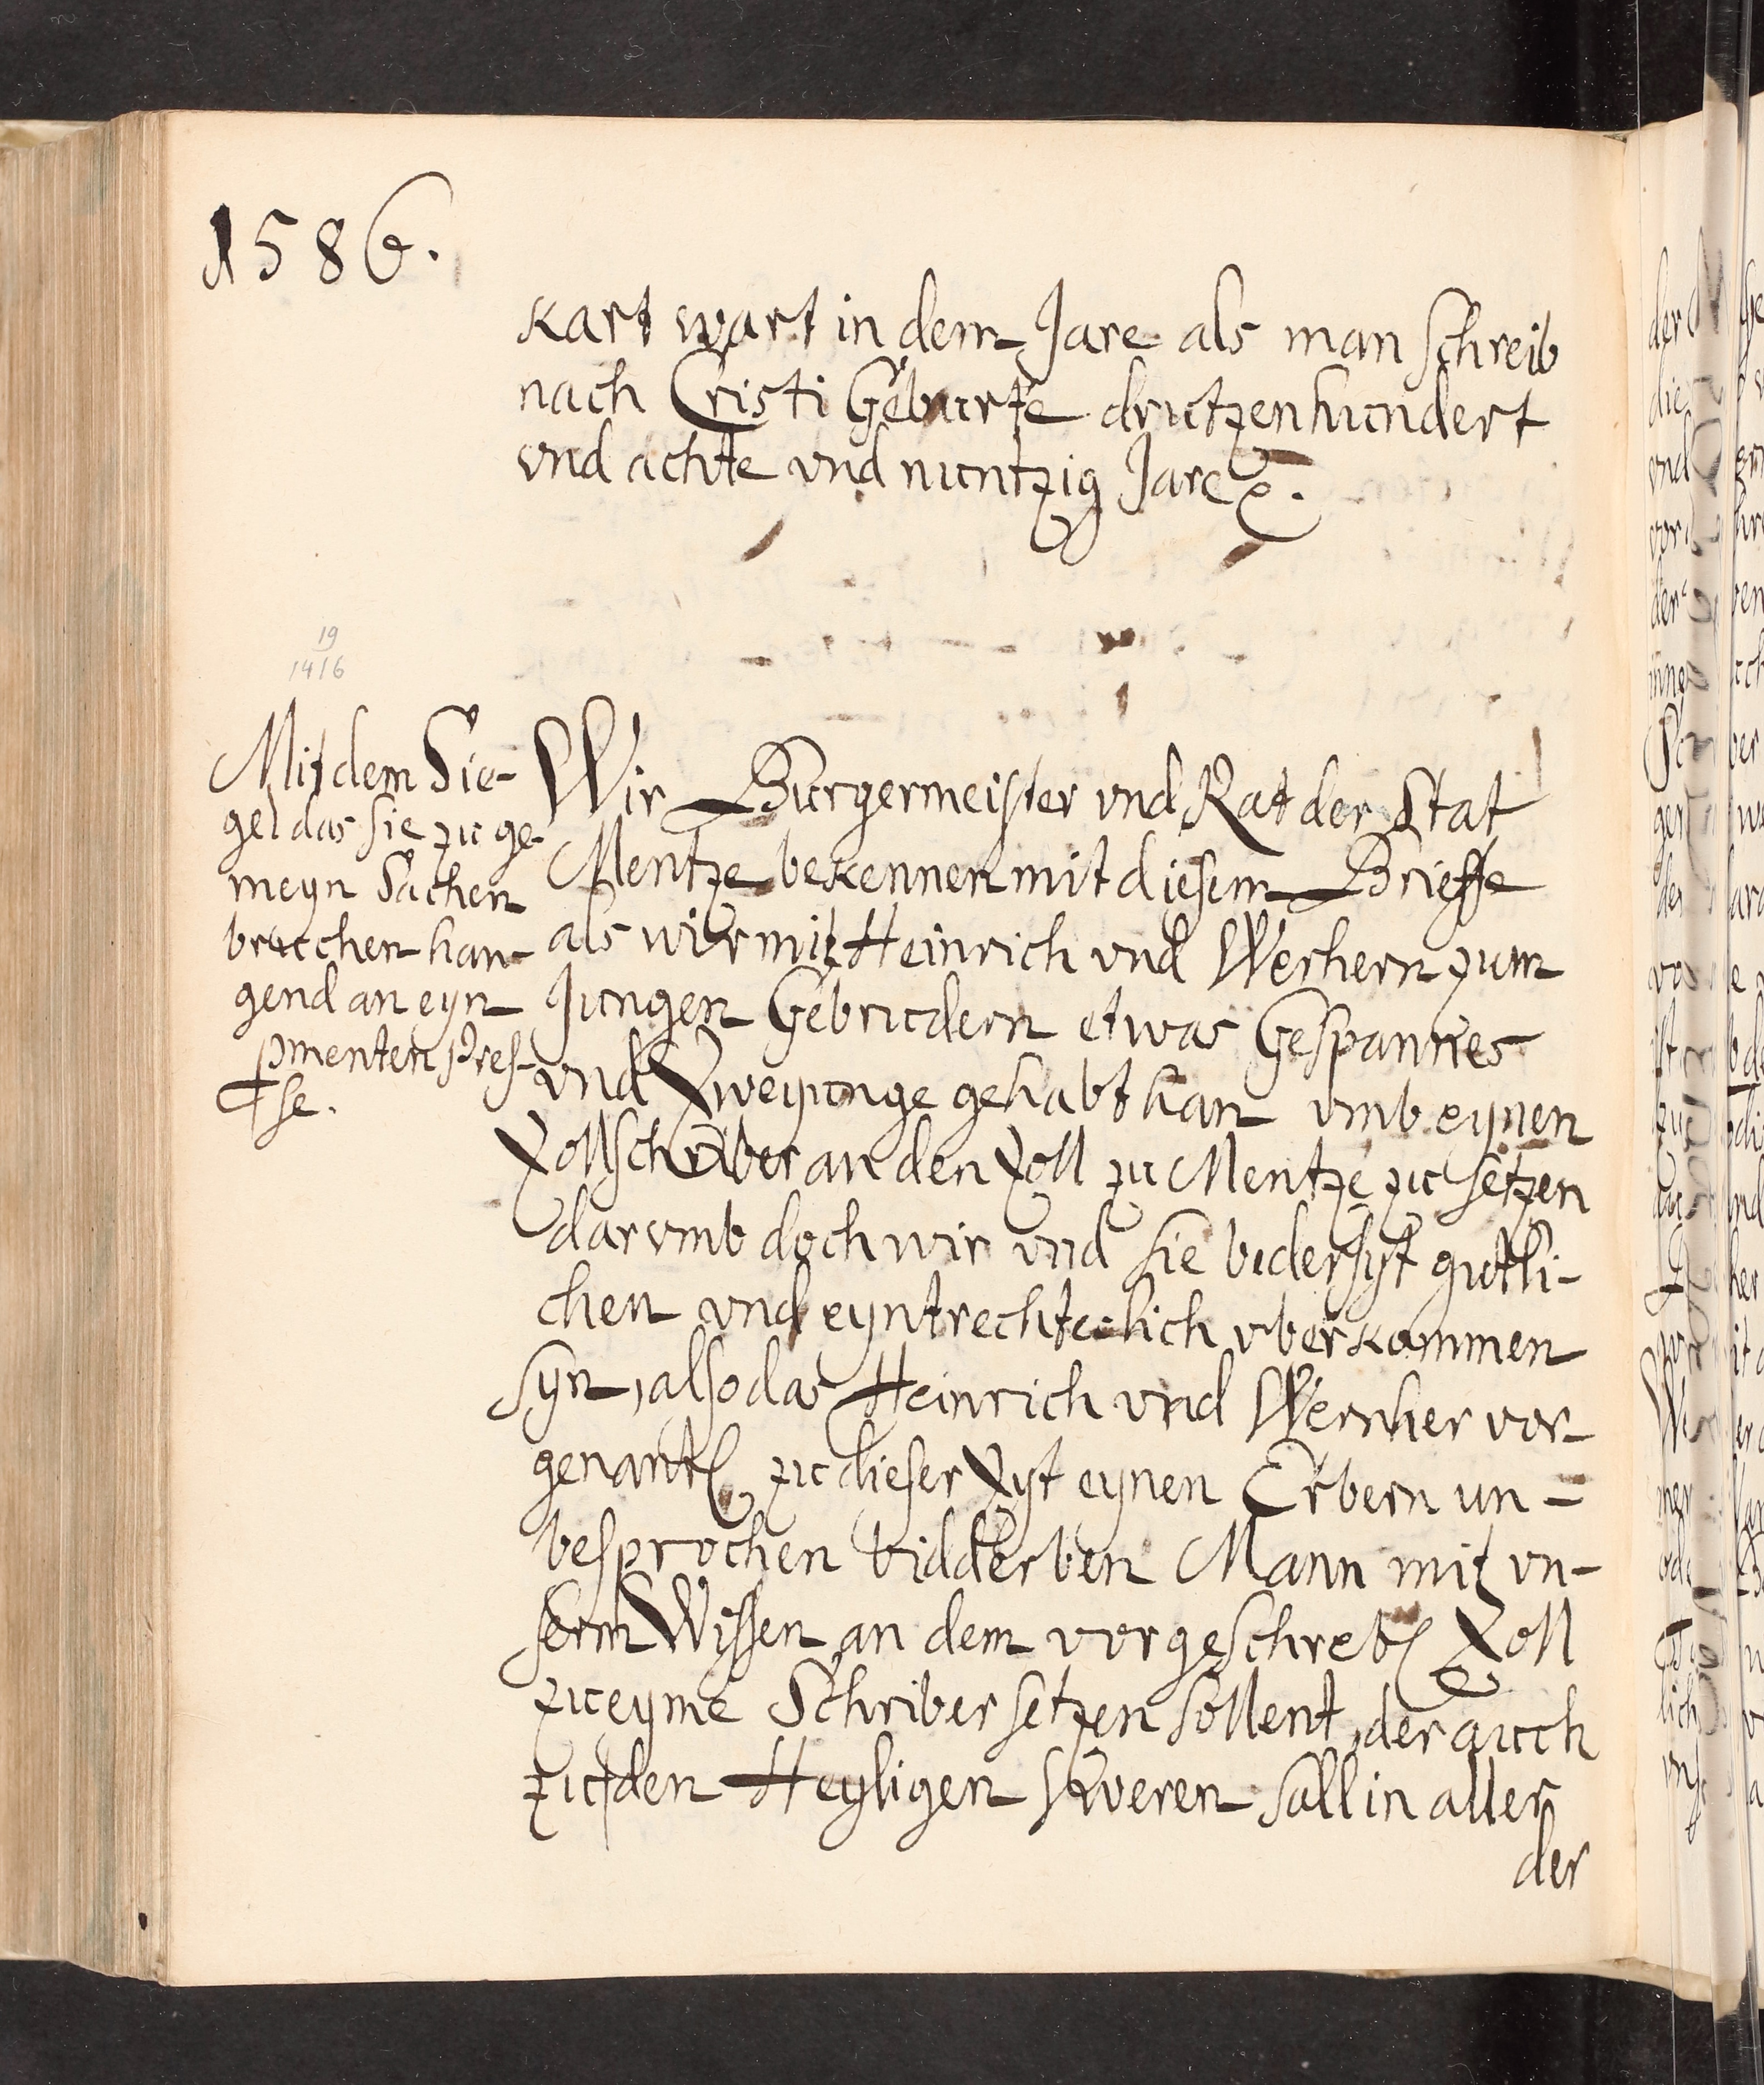 1586.
kart wart in dem Jare als man schreib
nach Cristi Geburte drutzenhundert
vnd achte vnd nuntzig Jare &.
19
1416
Mit dem Sie-
gel das sie zu ge-
meyn Sachen
bruchen han-
gend an eyn
pmenten Pres-
se.
Wir Burgermeister vnd Rat der Stat
Mentze bekennen mit diesem Brieffe
als wir mit Heinrich vnd Werhern zum
Jungen Gebrudern etwas Gespannes
vnd Zweyunge gehabt han vmb eynen
Zollschriber an den Zoll zu Mentze zu setzen
darvmb doch wir vnd sie bidersyt gutli-
chen vnd eyntrechteclich vberkommen
syn, also das Heinrich vnd Wernher vor-
genant zu dieser Zyt eynen Erbern un-
besprochen bidderben Mann mit vn-
serm Wissen an dem vorgeschreb Zoll
zu eyme Schriber setzen sollent, der auch
zu den Heyligen sweren sall in aller
der